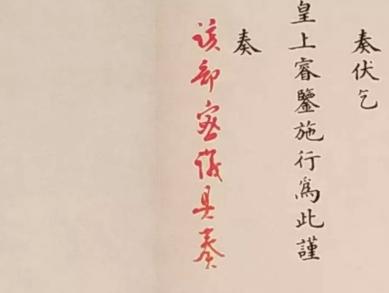 奏伏乞
皇上睿鑒施行爲此謹
奏
該部密議具奏